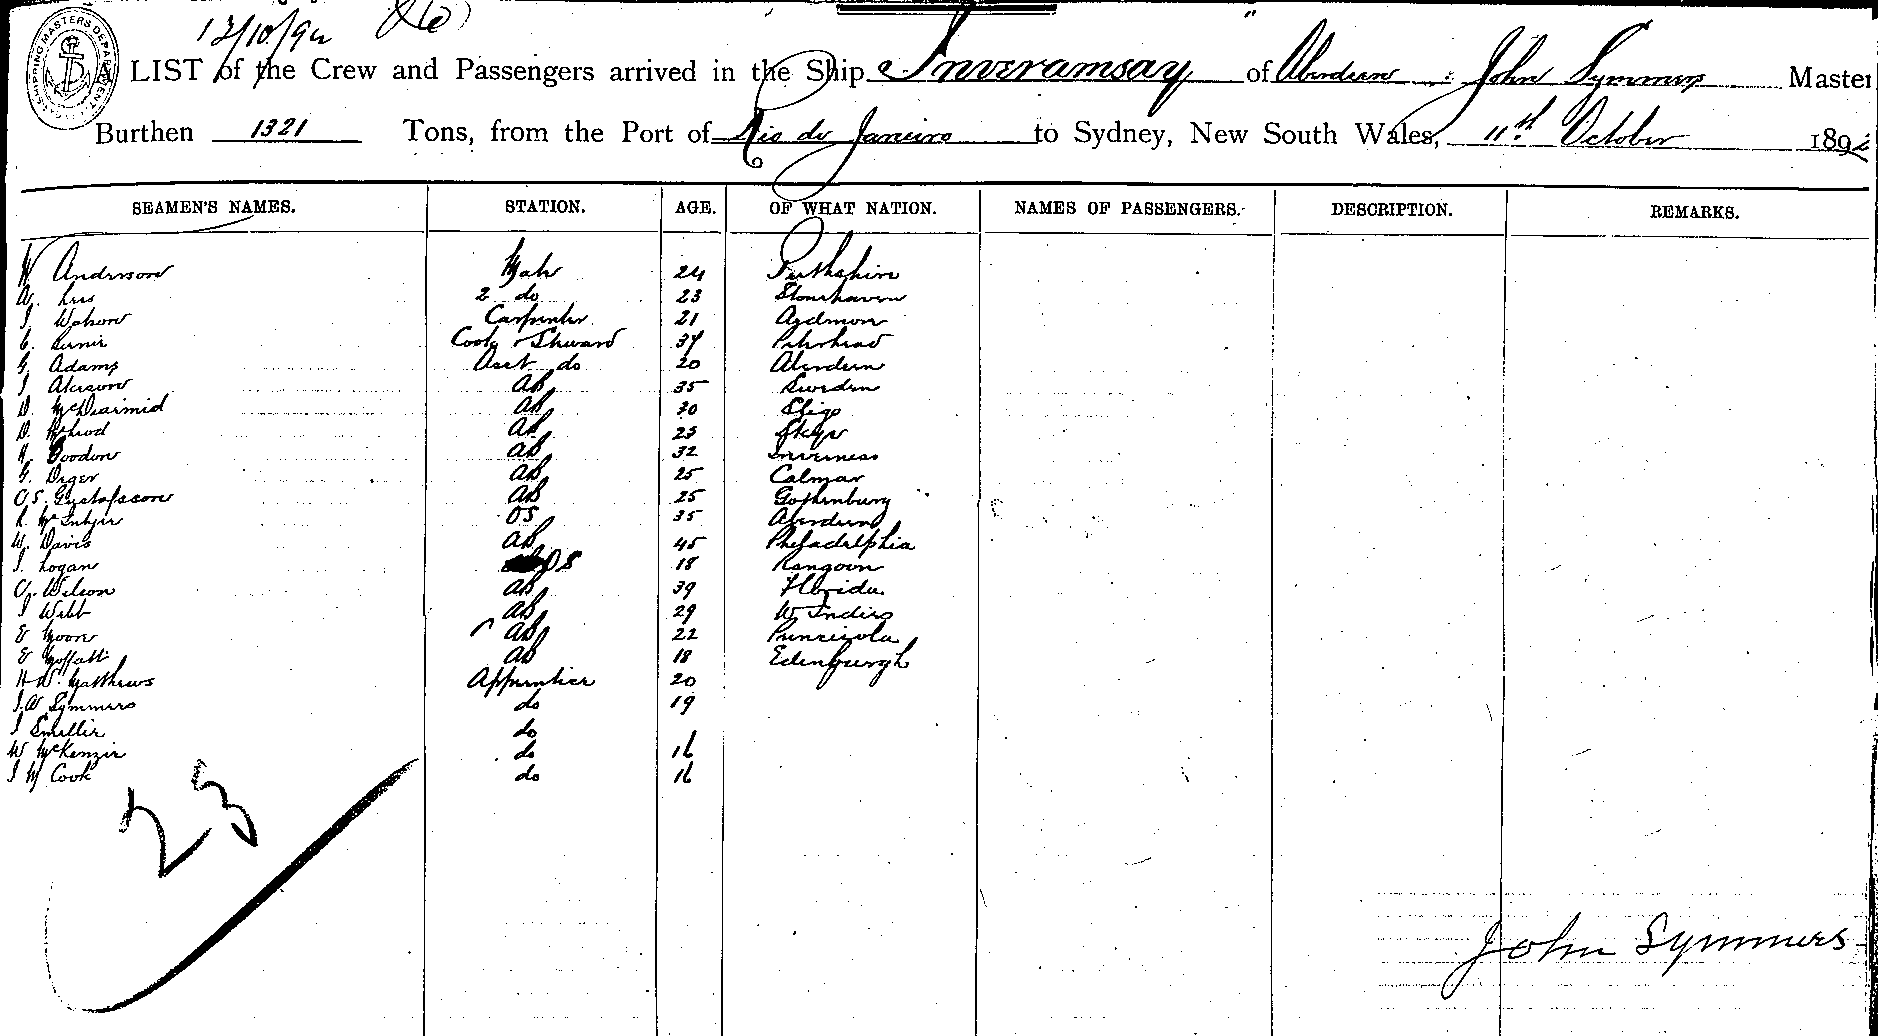 13/10/92
SHIPPING MASTERS DEPARTMENT
A LIST of the Crew and Passengers arrived in the Ship Inveramsay of Aberdeen : John Symmers Master
Burthen 1321 Tons, from the Port of Rio de Janeiro to Sydney, New South Wales, 11th October 1892
SEAMEN'S NAMES. STATION. AGE. OF WHAT NATION. NAMES OF PASSENGERS. DESCRIPTION. REMARKS.
W Anderson Mate 24 Perthshire
A. 2 do 23 Stonehaven
J Watson Carpenter 21
Cook & Steward 37 Peterhead
G Adams Asst do 20 Aberdeen
J Akerson AB 35 Sweden
D. McDiarmid AB 30 Sligo
D. McLeod AB 23 Skye
AB 32 Inverness
G. AB 25 Calmar
O.S. Gustafsson AB 25 Gothenburg
OS 35 Aberdeen
W. Davis AB 45 Philadelphia
J. Logan OS 18 Rangoon
O. Wilson AB 39 Florida
J Webb AB 29 W Indies
E Moore AB 22
E Moffatt AB 18 Edinburgh
H W. Matthews Apprentice 20
J.W Symmers do 19
J Smellie do
W McKenzie do 16
J M Cook do 16
23
John Symmers